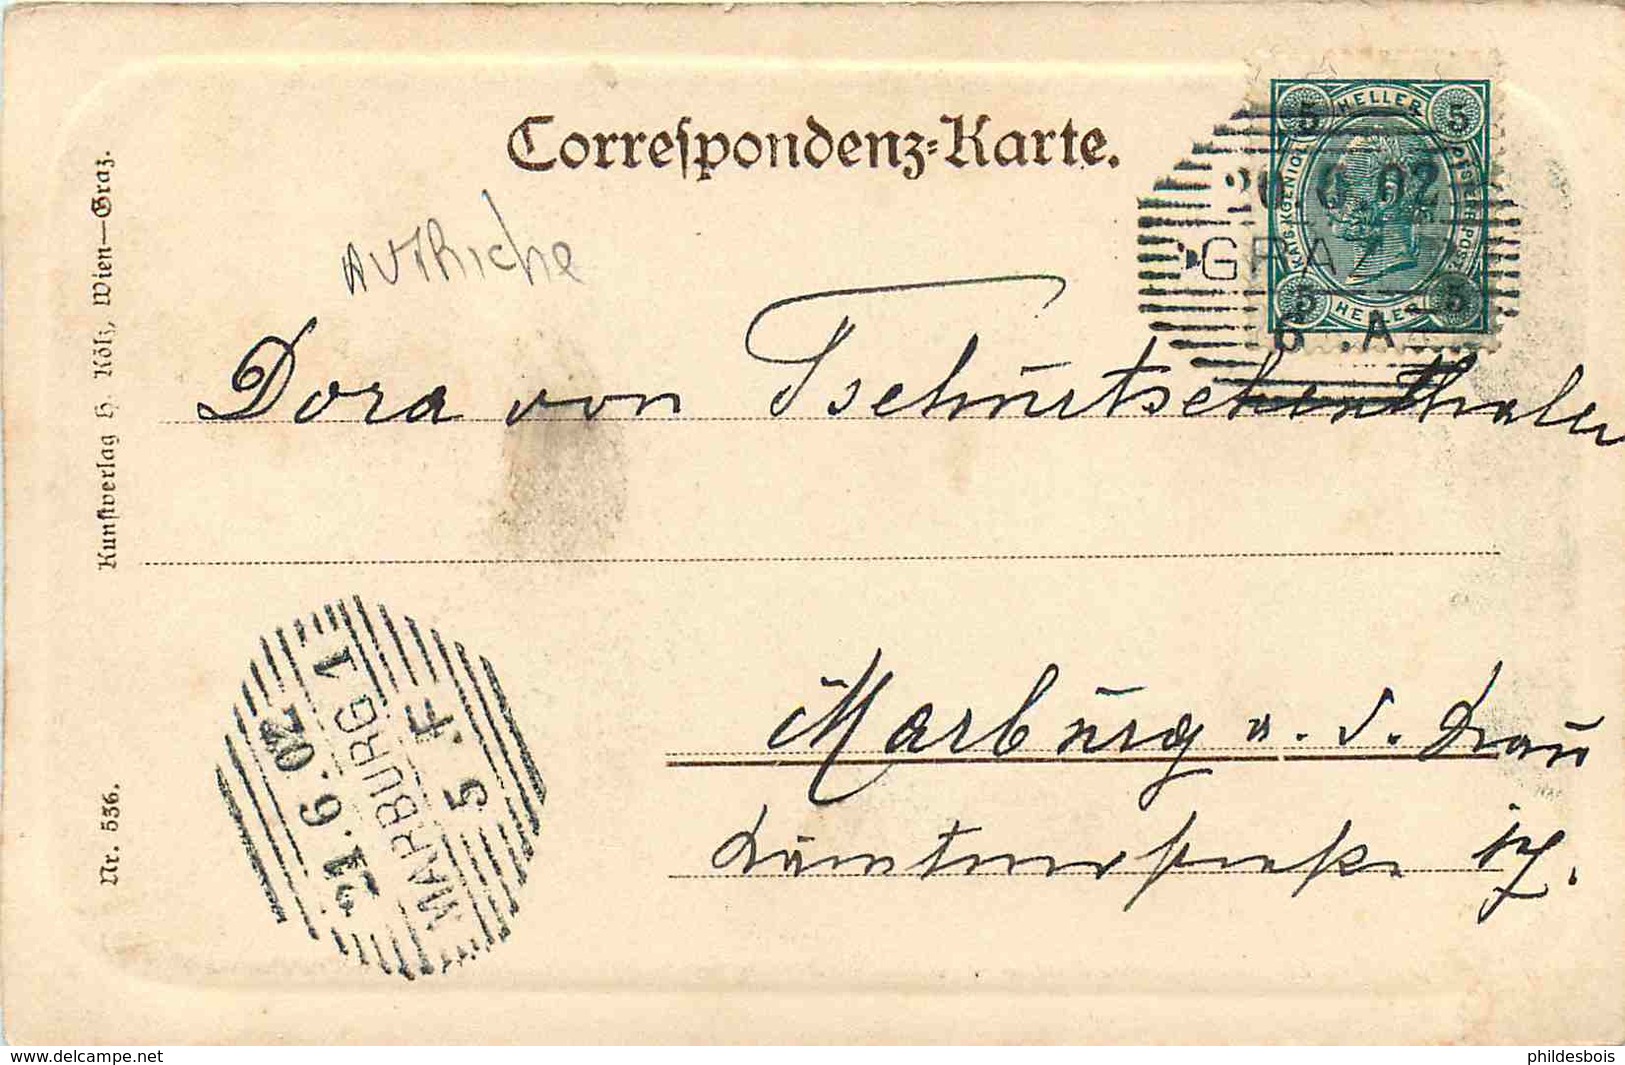 Correſpondenz-Karte.
HELLER
5 5
KAIS.KGENIGL
OESTERR.POST
5 5
HELLER
20.6.02
GRAZ
6 .A
AUTRiche
Dora von Tschurtschenthaler
Marburg a. d. Drau
Kärntnerstraße 17.
21.6.02
MARBURG 1
5 .F
Kunſtverlag H. Kölz, Wien—Graz.
Nr. 536.
www.delcampe.net
phildesbois